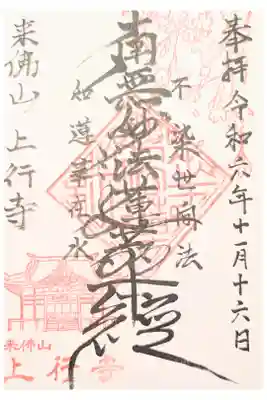 奉拝 令和六年十一月十六日
不染世間法
南無妙法蓮華経
如蓮華在水
来佛山 上行寺
来佛山
上行寺